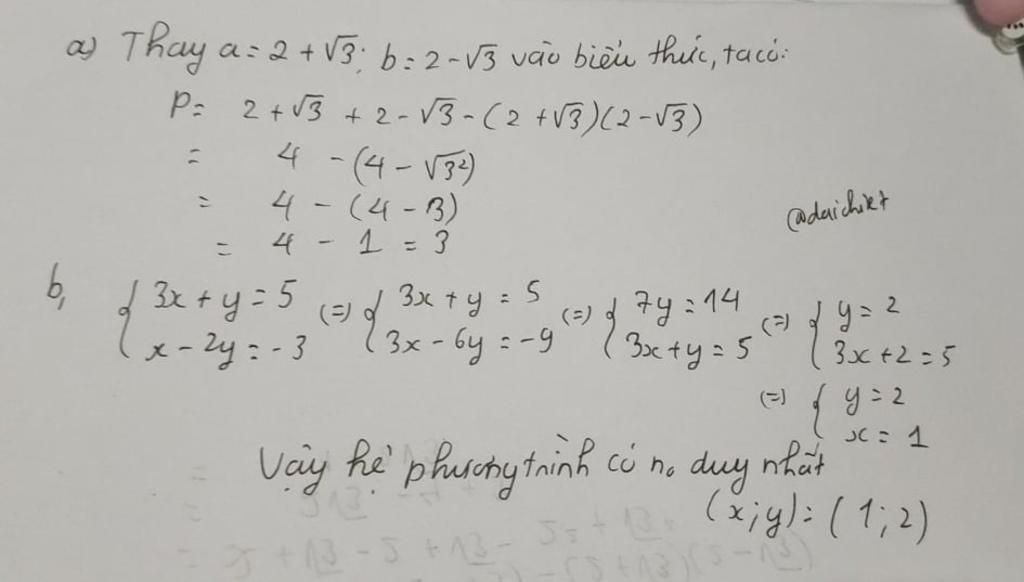 a) Thay a = 2 + √3; b = 2 - √3 vào biểu thức, ta có:
P = 2 + √3 + 2 - √3 - (2 + √3)(2 - √3)
= 4 - (4 - √3²)
= 4 - (4 - 3)
@daichikt
= 4 - 1 = 3
b, { 3x + y = 5 (=) { 3x + y = 5 (=) { 7y = 14 (=) { y = 2
x - 2y = -3 3x - 6y = -9 3x + y = 5 3x + 2 = 5
(=) { y = 2
x = 1
Vậy hệ phương trình có no duy nhất
(x; y) = (1; 2)